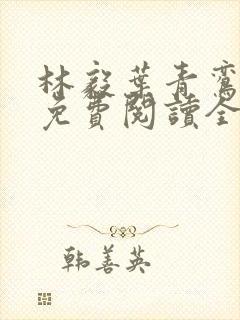 林毅葉青鸞
免費閱讀全
韩善英